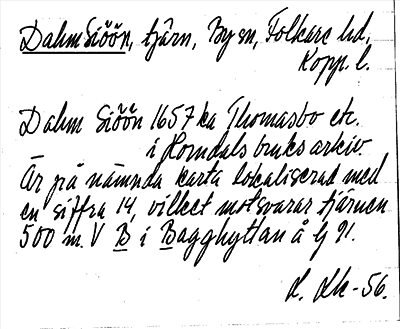 Dahm Siöön, tjärn, By sn, Folkare hd,
Kopp. l.
Dahm Siöön 1657 ka Thomasbo etc.
i Horndals bruks arkiv.
Är på nämnda karta lokaliserad med
en siffra 14, vilket motsvarar tjärnen
500 m. V B i Bagghyttan å Gj 91.
L. Lk -56.